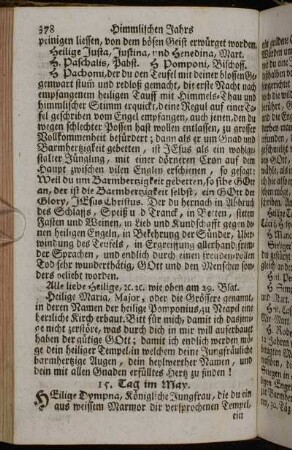 378 Himmlischen Jahrs
peinigen liessen, von dem bösen Geist erwürget worden.
Heilige Justa, Justina, und Henedina, Mart.
H. Paschalis, Pabst. H Pomponi, Bischoff.
H Pachomi, der du den Teufel mit deiner blossen Ge-
genwart stum und redloß gemacht, die erste Nacht nach
empfangenem heiligen Tauff mit Himmels-Thau und
himmlischer Stimm erquickt, deine Regul auf eine Ta-
fel geschriben vom Engel empfangen, auch jenen, den du
wegen schlechter Possen hast wollen entlassen, zu grosser
Vollkommenheit befürdert; dann als er um Gnad und
Barmhertzigkeit gebetten, ist JEsus als ein wohlge-
stalter Jüngling, mit einer dörneren Cron auf dem
Haupt zwischen vilen Englen erschienen, so gesagt:
Weil du um Barmhertzigkeit gebetten, so sihe GOtt
an, der ist die Barmhertzigkeit selbst, ein GOtt der
Glory, JEsus Christus. Der du hernach in Abbruch
des Schlaffs, Speiß u. Tranck, in Betten, stetten
Fasten und Weinen, in Lieb und Kundschafft gegen de-
nen heiligen Engeln, in Bekehrung der Sünder, Uber-
windung des Teufels, in Ergreiffung allerhand fremb-
der Sprachen, und endlich durch einen freudenvollen
Tod sehr wunderthätig, GOtt und den Menschen son-
ders beliebt worden.
Alle liebe Heilige, ꝛc. ꝛc. wie oben am 29. Blat.
Heilige Maria, Major, oder die Grössere genannt,
in deren Namen der heilige Pomponius, zu Neapel ein
herrliche Kirch erbaut. Bitt für mich, damit ich das jeni-
ge nicht zerstöre, was durch dich in mir will auferbaut
haben der gütige GOtt; damit ich endlich werden möge
dein heiliger Tempel in welchem deine Jungfräuliche
barmhertzige Augen, dein heylwerther Namen, und
dein mit allen Gnaden erfülltes Hertz zu finden!
15. Tag im May.
HEilige Dympna, Königliche Jungfrau, die du ein
aus weissem Marmor dir versprochenen Tempel,
ein